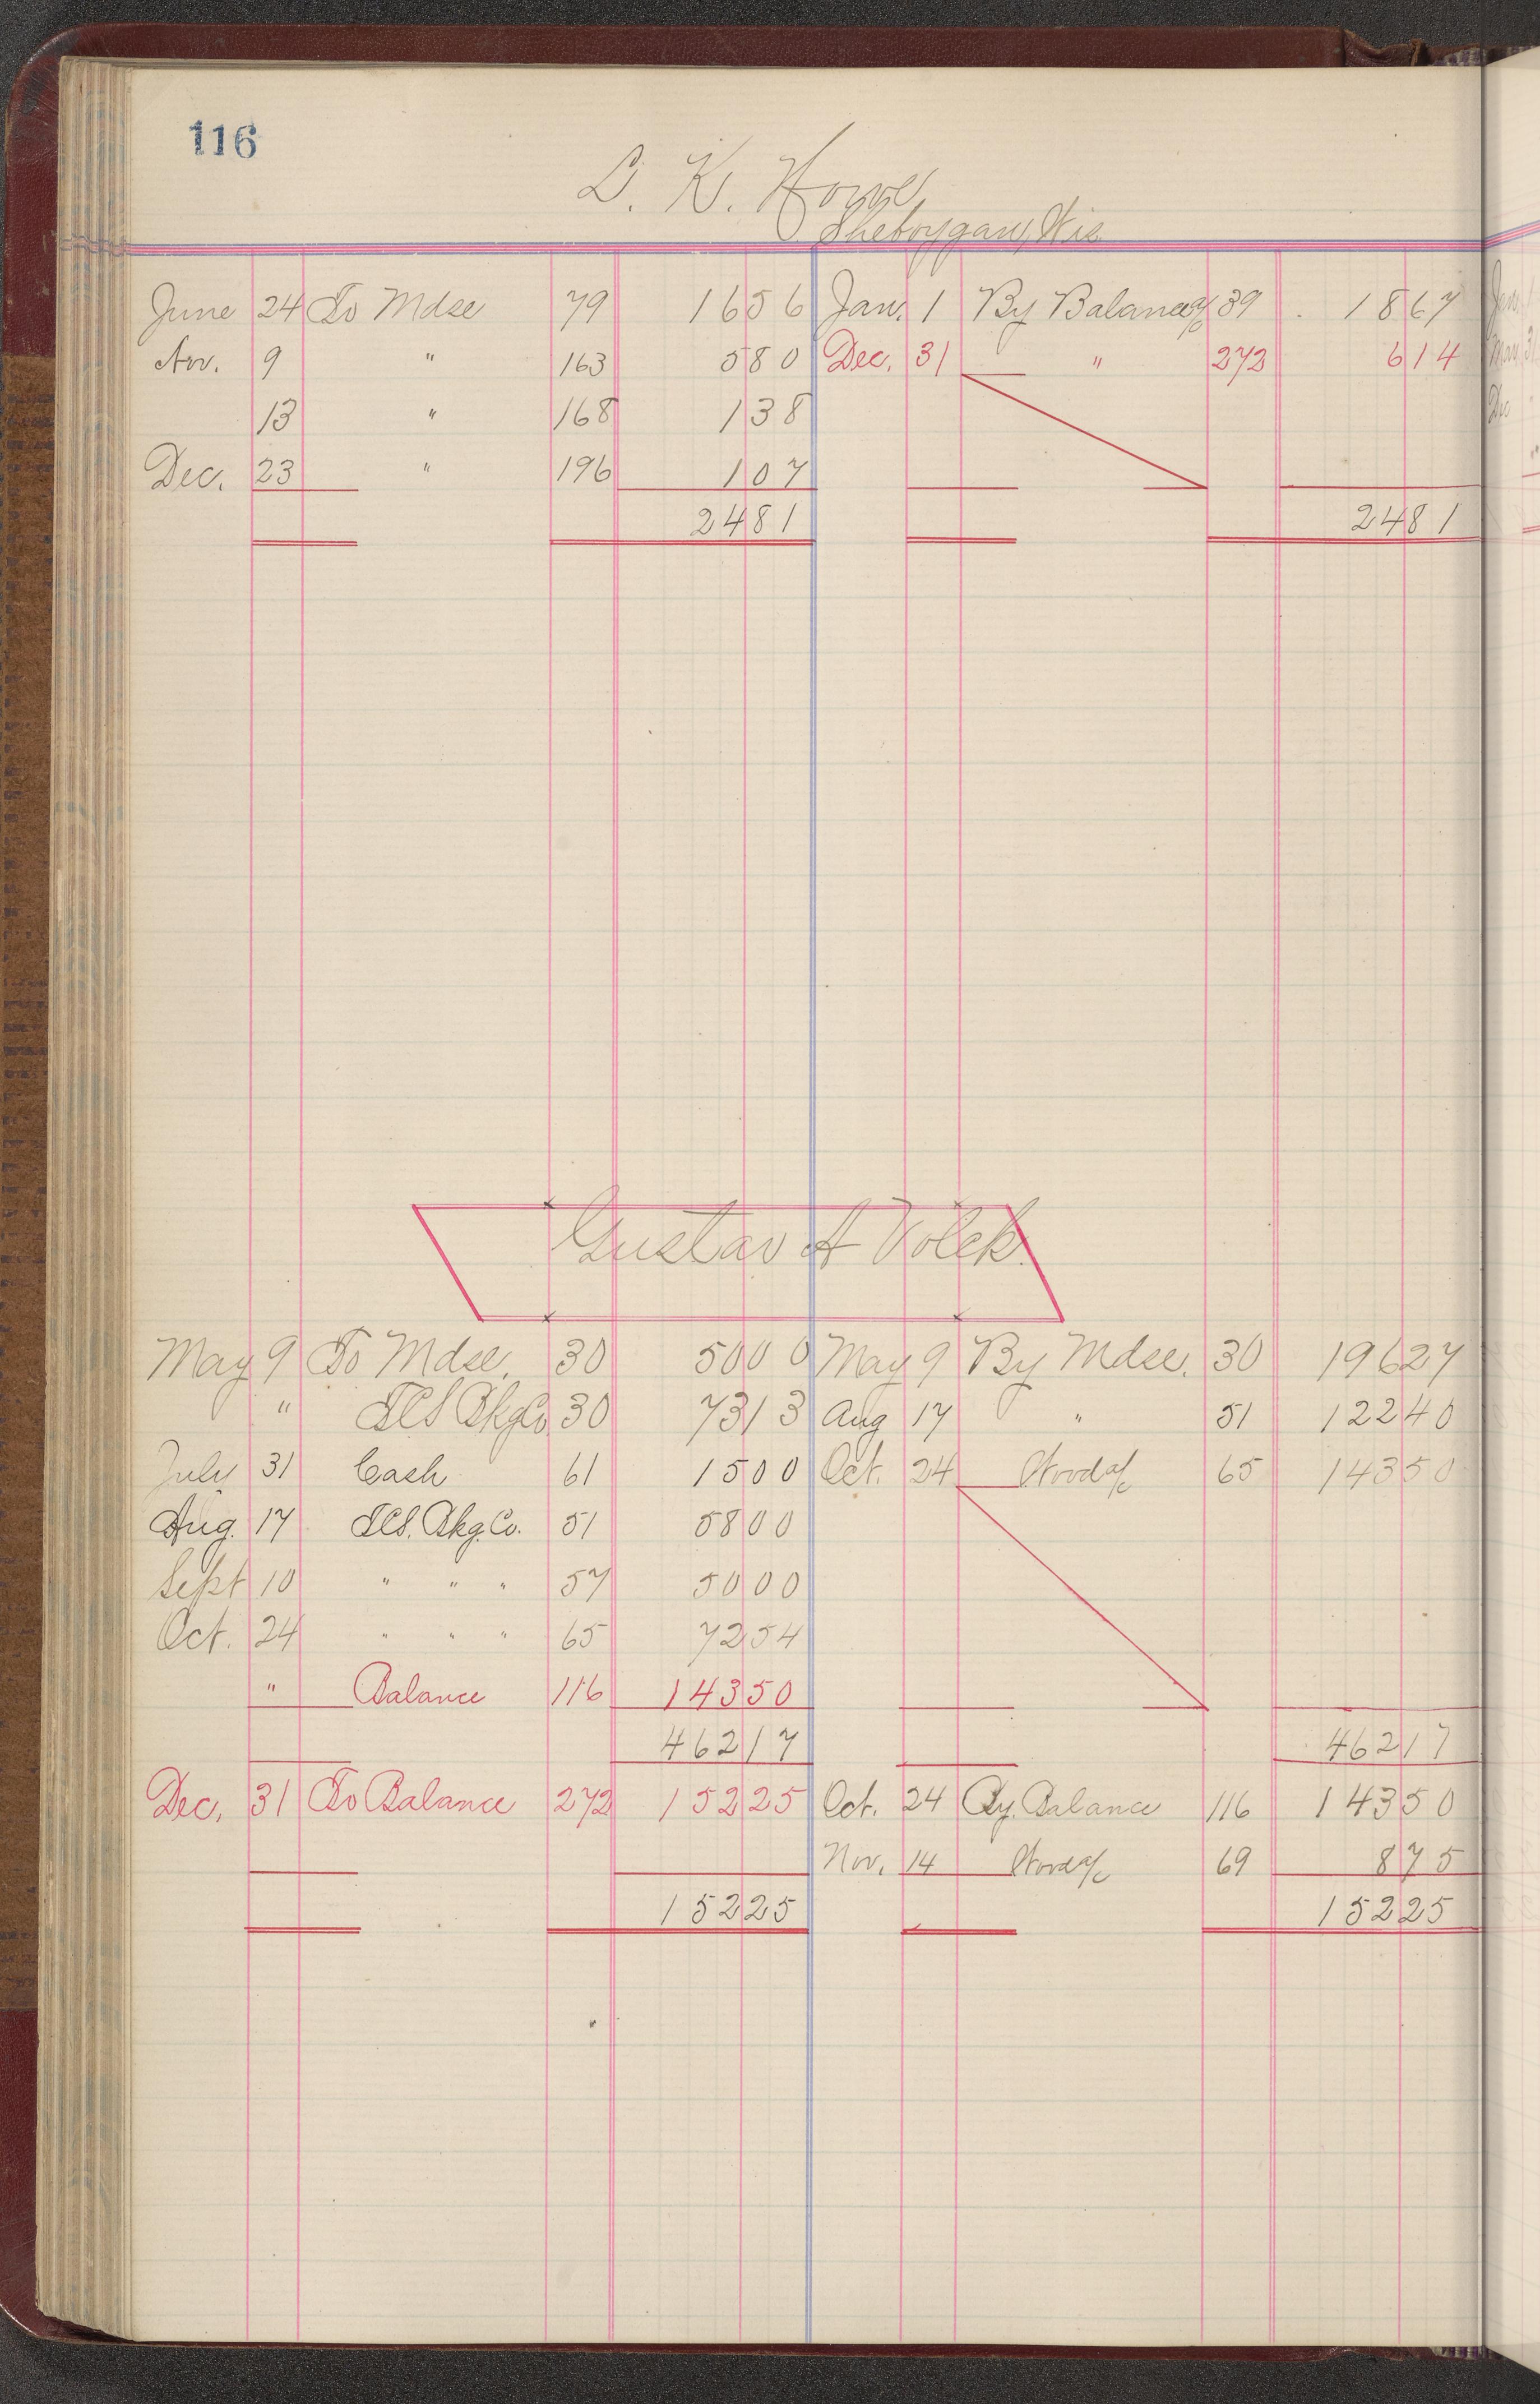 116
L. K. Howe
Sheboygan, Wis
June 24 To Mdse 79 16 56 Jan. 1 By Balance a/c 39 18 67
Nov. 9 " 163 5 80 Dec. 31 " 272 6 14
13 " 168 1 38
Dec. 23 " 196 1 07
24 81 24 81
Gustav A Volek.
May 9 To Mdse. 30 50 00 May 9 By Mdse. 30 196 27
" T.C.S. Bkg Co 30 73 13 Aug 17 " 51 122 40
July 31 Cash 61 15 00 Oct. 24 Wood a/c 65 143 50
Aug. 17 T.C.S. Bkg. Co. 51 58 00
Sept 10 " " " 57 50 00
Oct. 24 " " " 65 72 54
" Balance 116 143 50
462 17 462 17
Dec. 31 To Balance 272 152 25 Oct. 24 By Balance 116 143 50
Nov. 14 Wood a/c 69 8 75
152 25 152 25